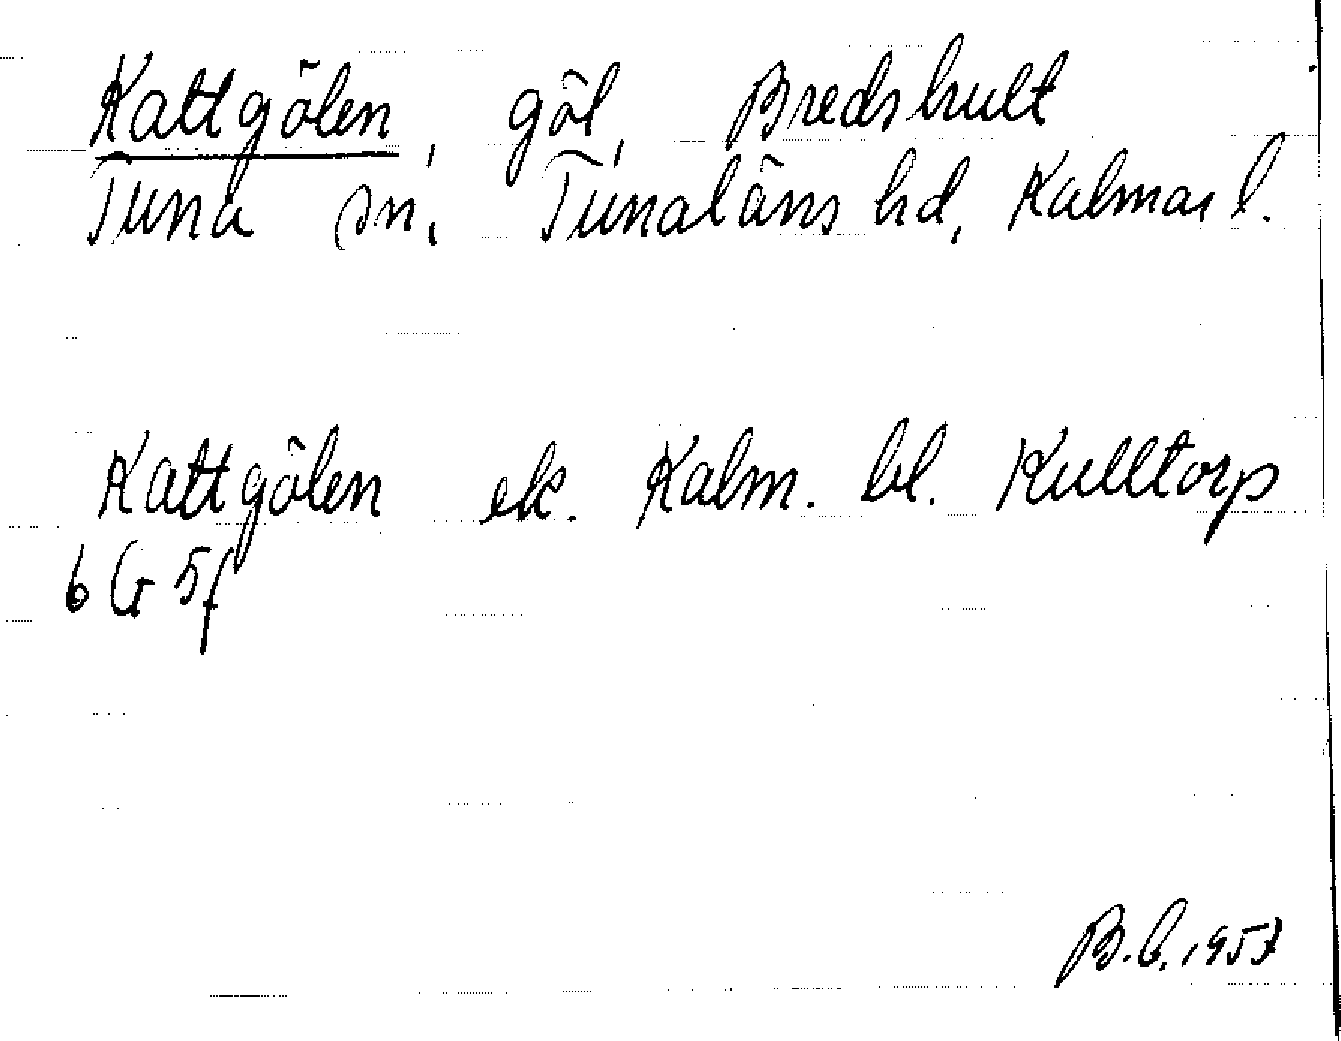 Kattgölen, göl, Bredshult
Tuna sn, Tunaläns hd, Kalmar l.
Kattgölen ek. Kalm. bl. Kulltorp
6 G 5f
1957